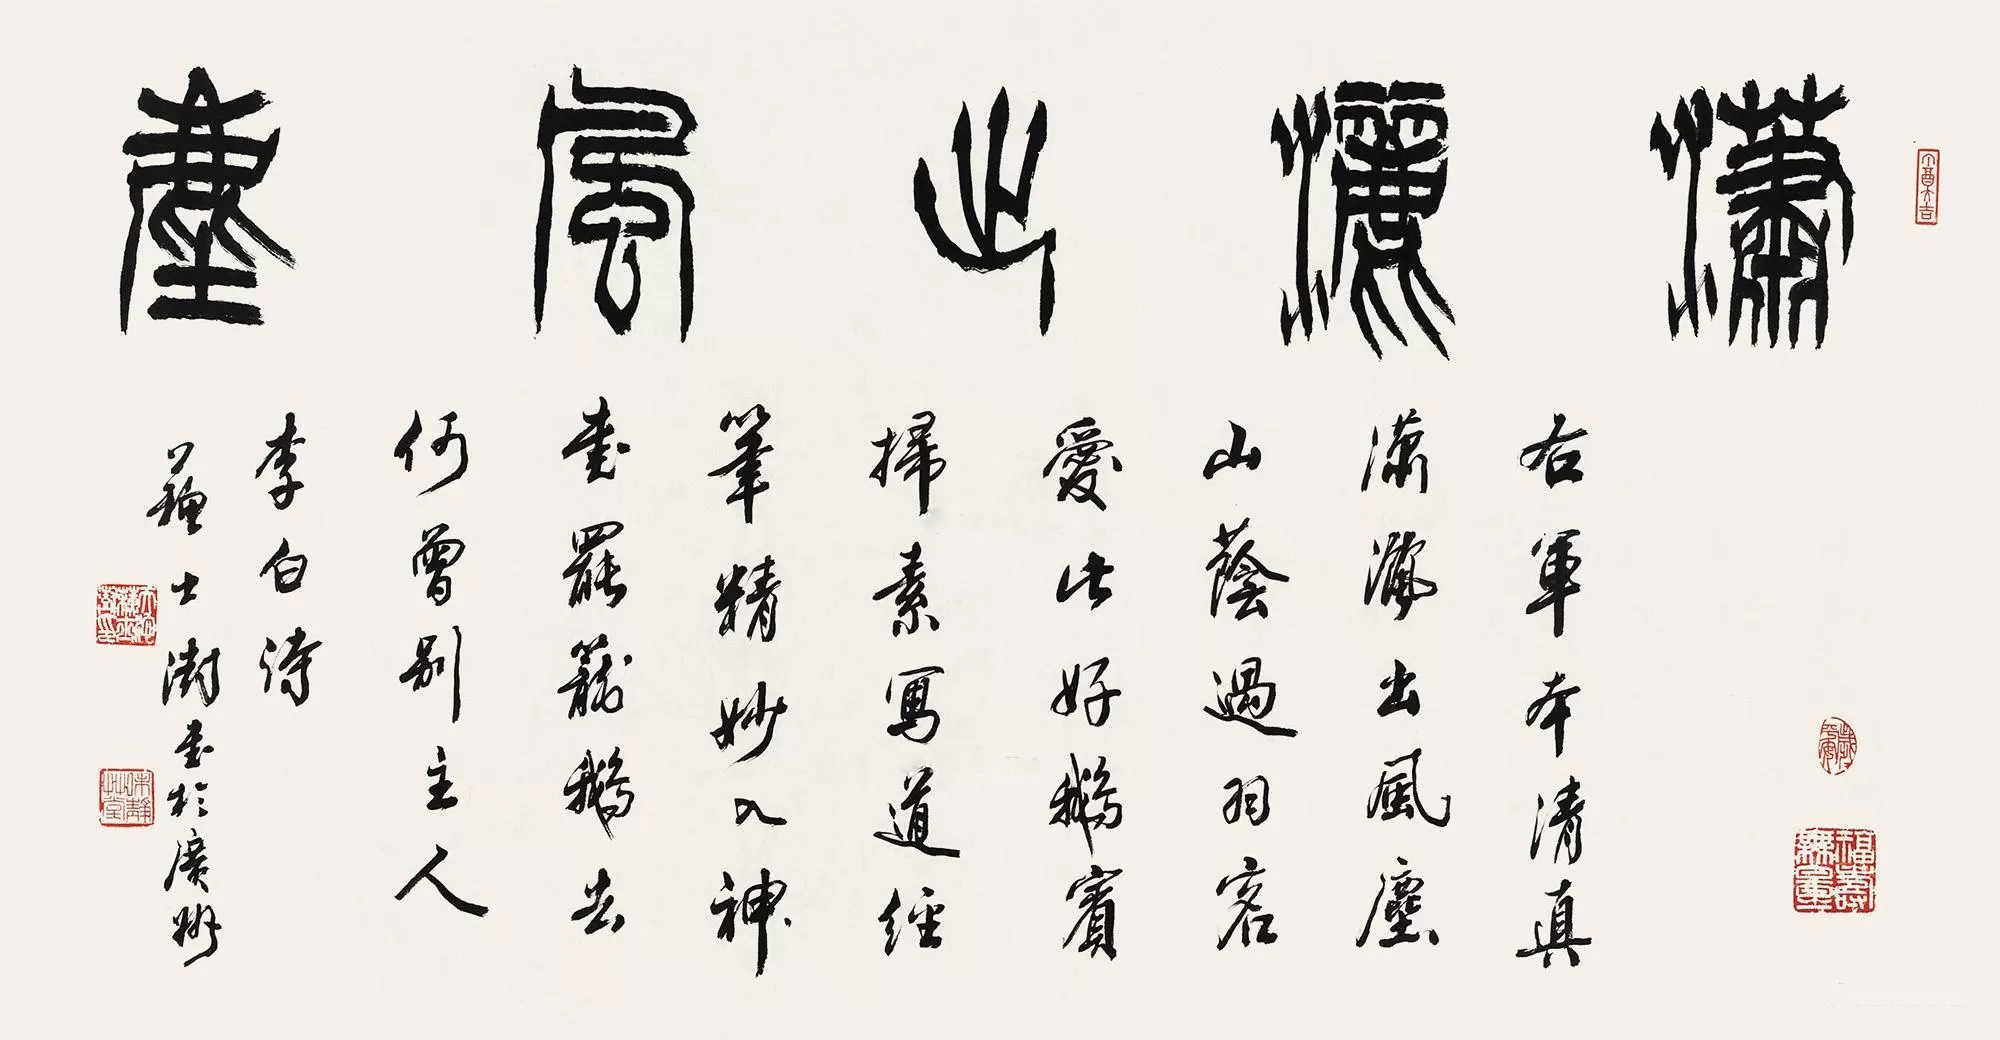 瀟灑出風塵
右軍本清真
瀟灑出風塵
山蔭過羽客
愛此好鵝賓
掃素寫道經
筆精妙入神
書罷籠鵝去
何曾別主人
李白詩
蘇士澍書於廣州
福壽無量